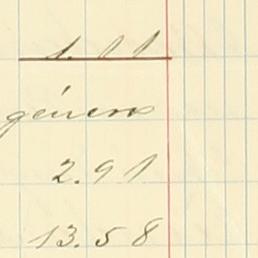 1.11
género
2.91
13.58